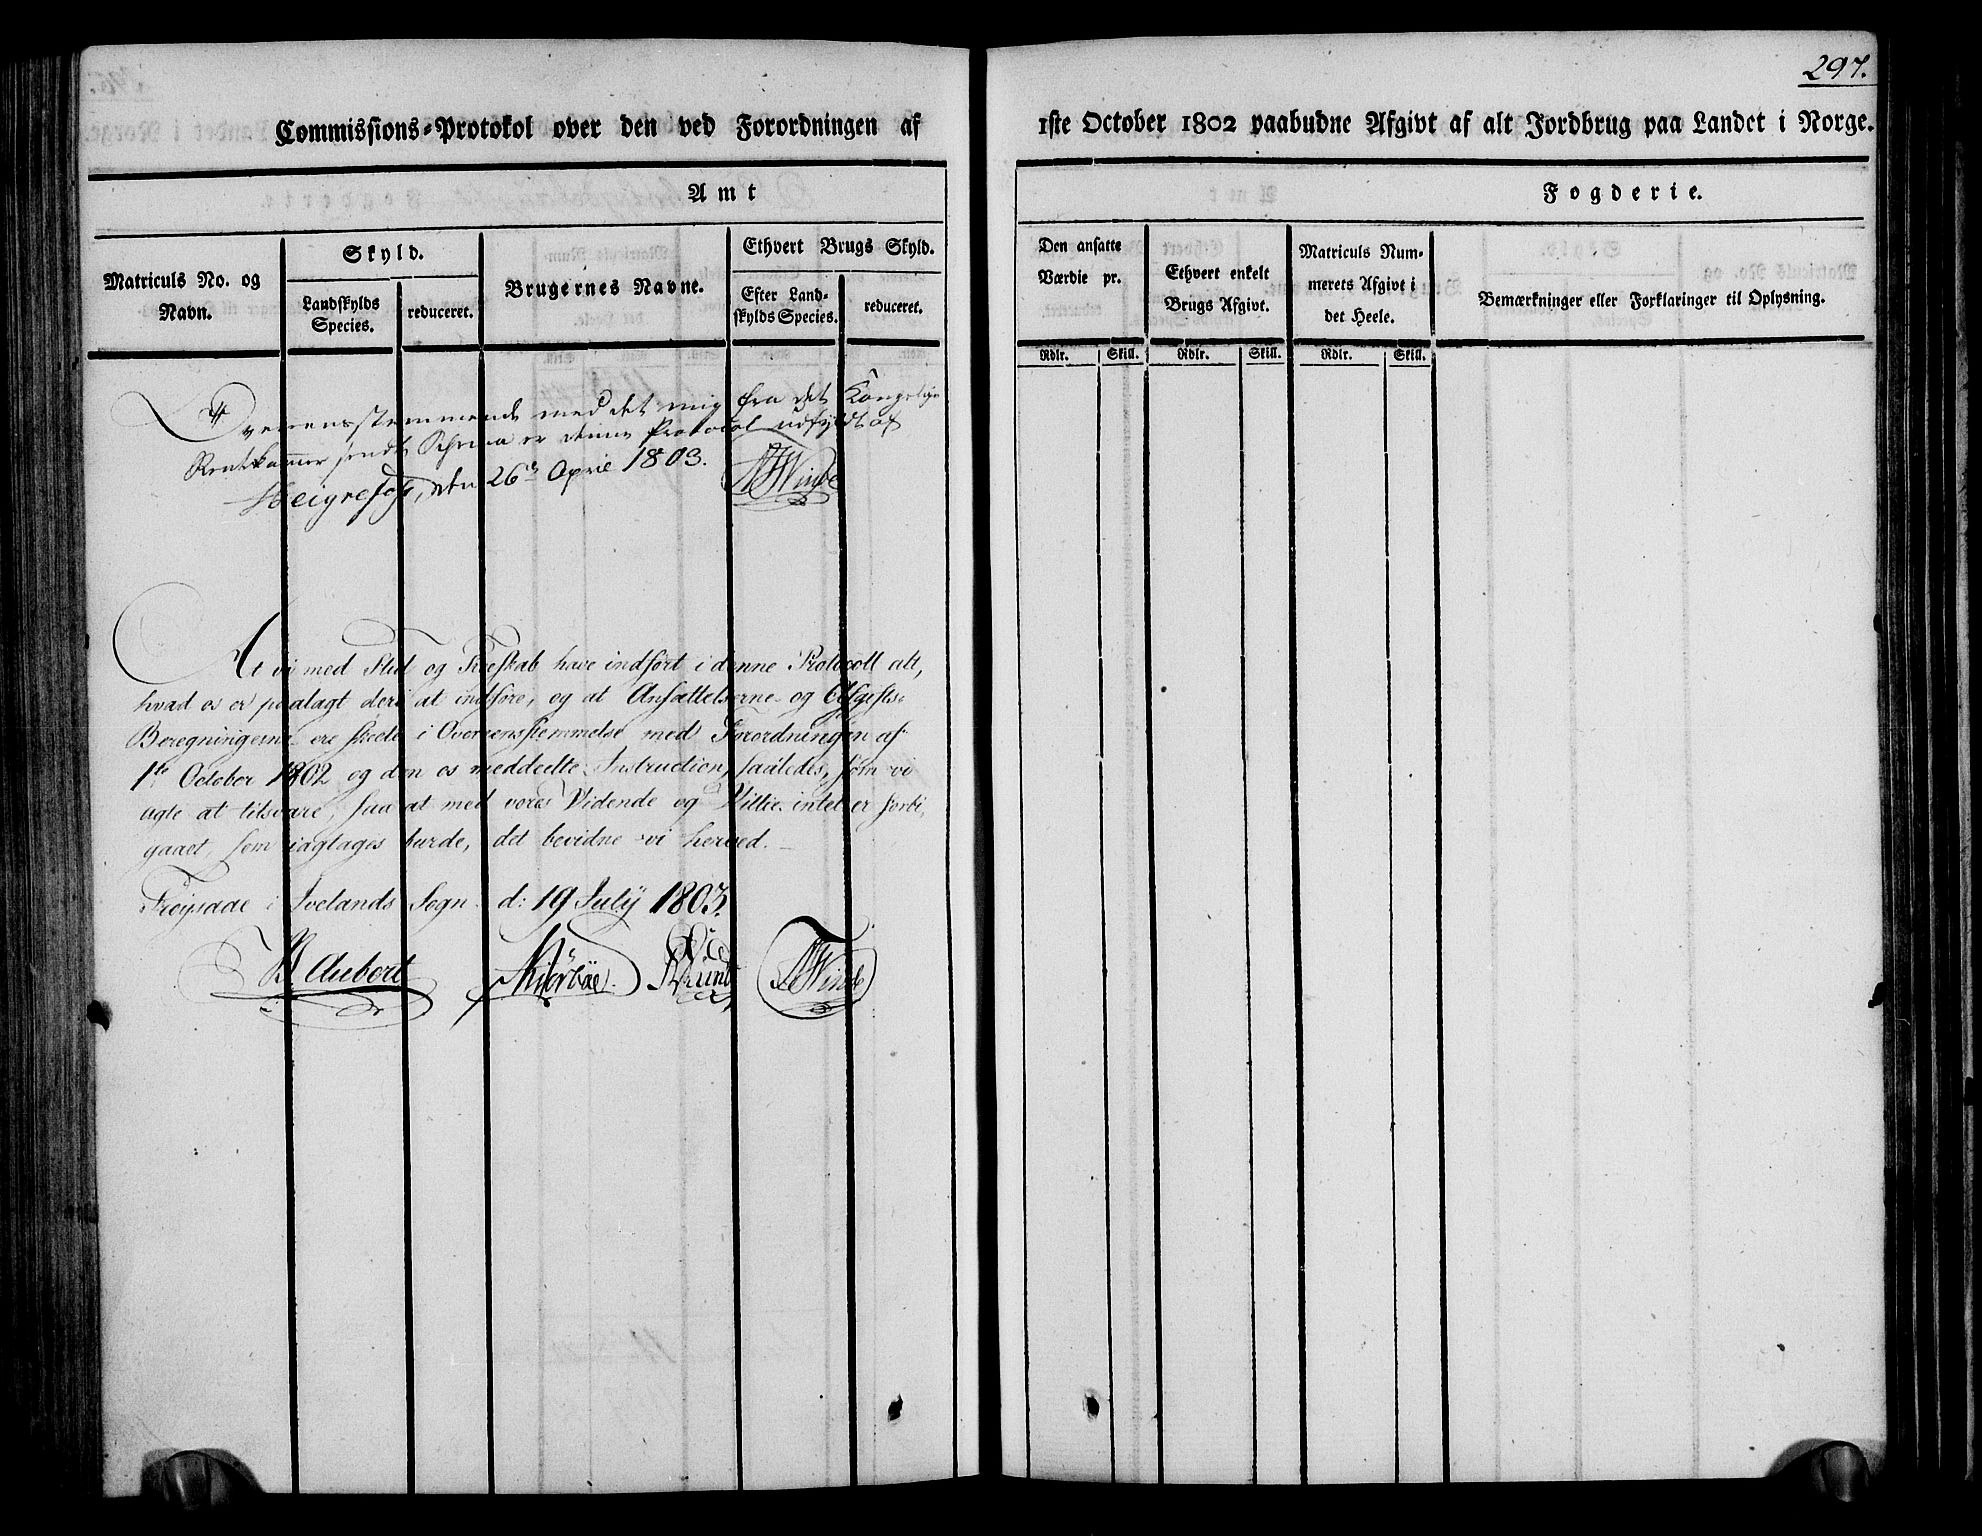 297.
Commissions-Protokol over den ved Forordningen af
1ste October 1802 paabudne Afgivt af alt Jordbrug paa Landet i Norge.
Amt
Fogderie.
Matriculs No. og
Navn.
Skyld.
Landskylds
Species.
reduceret.
Brugernes Navne.
Ethvert Brugs Skyld.
Efter Land-
skylds Species.
reduceret.
Den ansatte
Værdie pr.
Ethvert enkelt
Brugs Afgivt.
Matriculs Num-
merets Afgivt i
det Heele.
Bemærkninger eller Forklaringer til Oplysning.
Rdlr. Skill. Rdlr. Skill. Rdlr. Skill.
Overensstemmende med det mig fra det Kongelige
Rentekammer sendte Schema er denne Protocol udfyldt af
Heigrefoss, den 26de April 1803. Winde
At vi med Flid og Troeskab have indført i denne Protocoll alt,
hvad os er paalagt deri at indføre, og at Ansættelserne og Afgifts-
Beregningerne ere skeete i Overeensstemmelse med Forordningen af
1ste October 1802 og den os meddeelte Instruction, saaledes, som vi
agte at tilsvare, saa at med vores Vidende og Villie intet er forbi,
gaaet, som iagtages burde, det bevidne vi herved.
Frøysaae i Ivelands Sogn d: 19 July 1803.
B Aubert Kiørboe Lund Winde